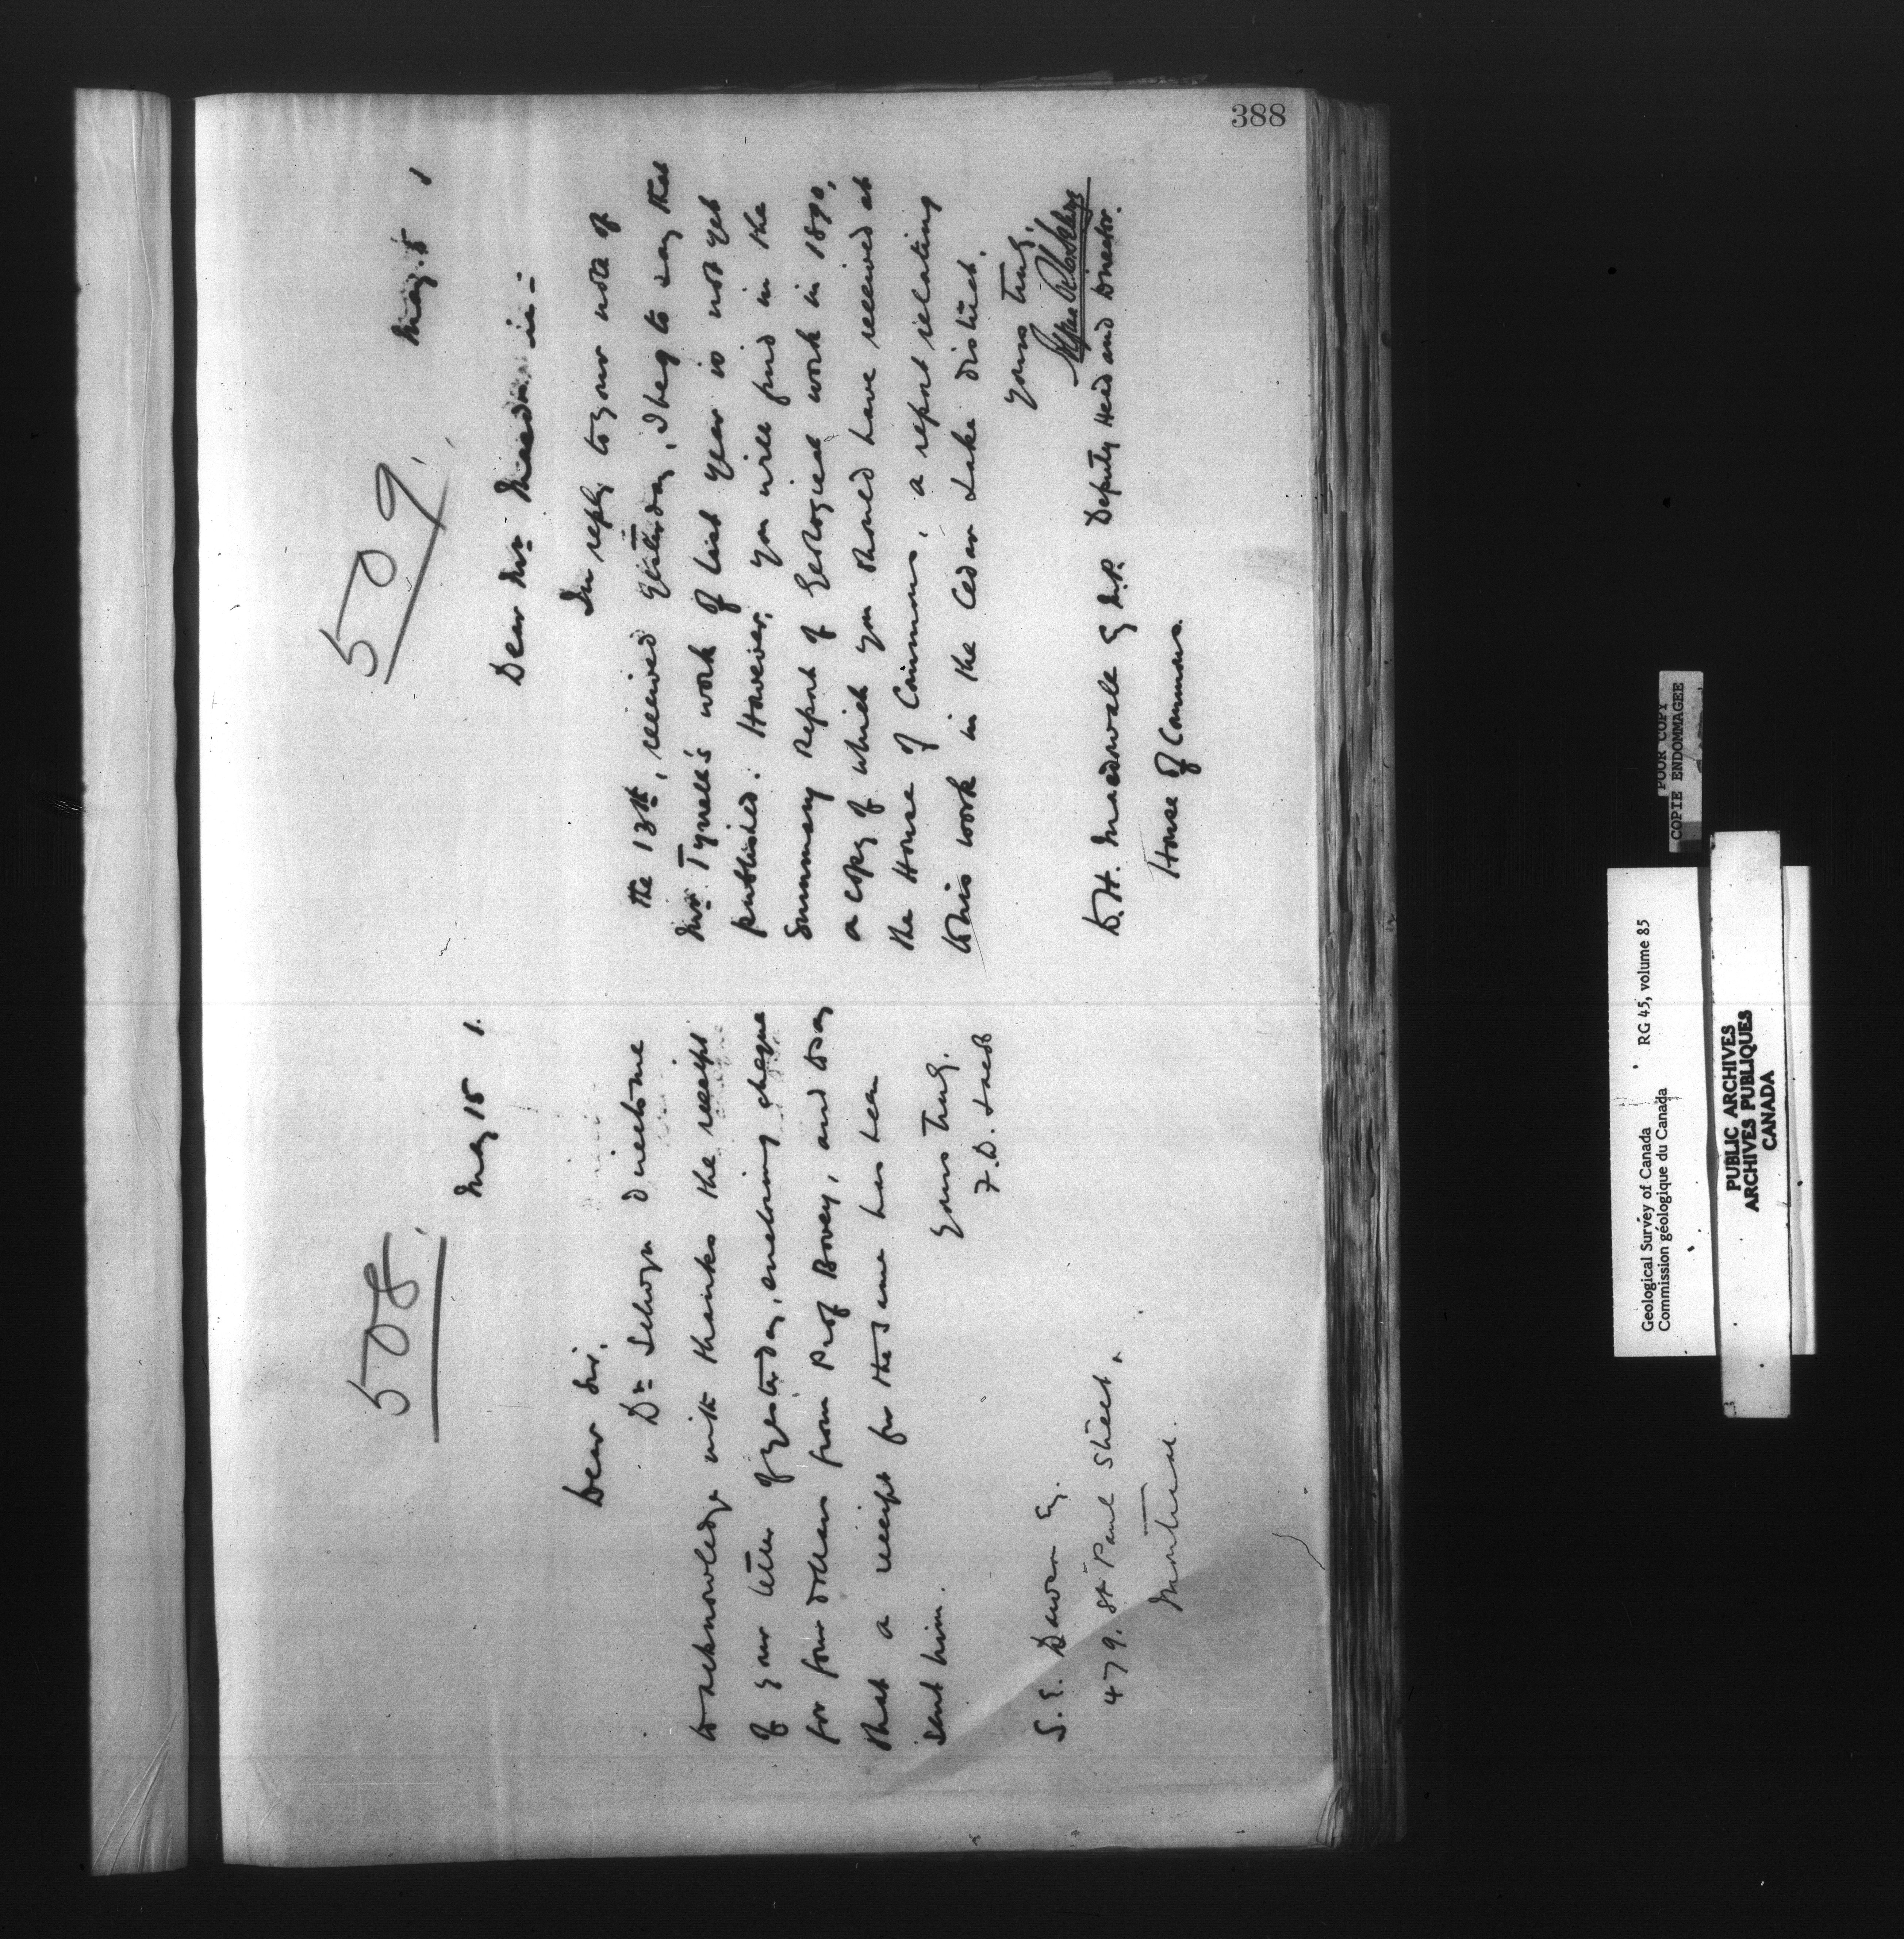 388
508
May 15 1.
Dear Sir,
Dr Selwyn directs me
to acknowledge with thanks the receipt
of your letter of yesterday, enclosing cheque
for four dollars from Prof Bovey, and to say
that a receipt for the same has been
sent him.
Yours truly.
S. E. Dawson Esq.
479. St Paul Street,
Montreal.
509
May. 15 1
Dear Mr
In reply to your note of
the 13th, received yesterday, I beg to say that
Mr Tyrrell's work of last year is not yet
published. However, you will find in the
Summary Report of Geological work in 1890,
a copy of which you should have received at
the House of Commons, a report relating
to his work in the Cedar Lake district.
Yours truly,
Deputy Head and Director.
D. H. Macdowall Esq M.P.
House of Commons.
POOR COPY
COPIE ENDOMMAGEE
Geological Survey of Canada RG 45, volume 85
Commission géologique du Canada
PUBLIC ARCHIVES
ARCHIVES PUBLIQUES
CANADA